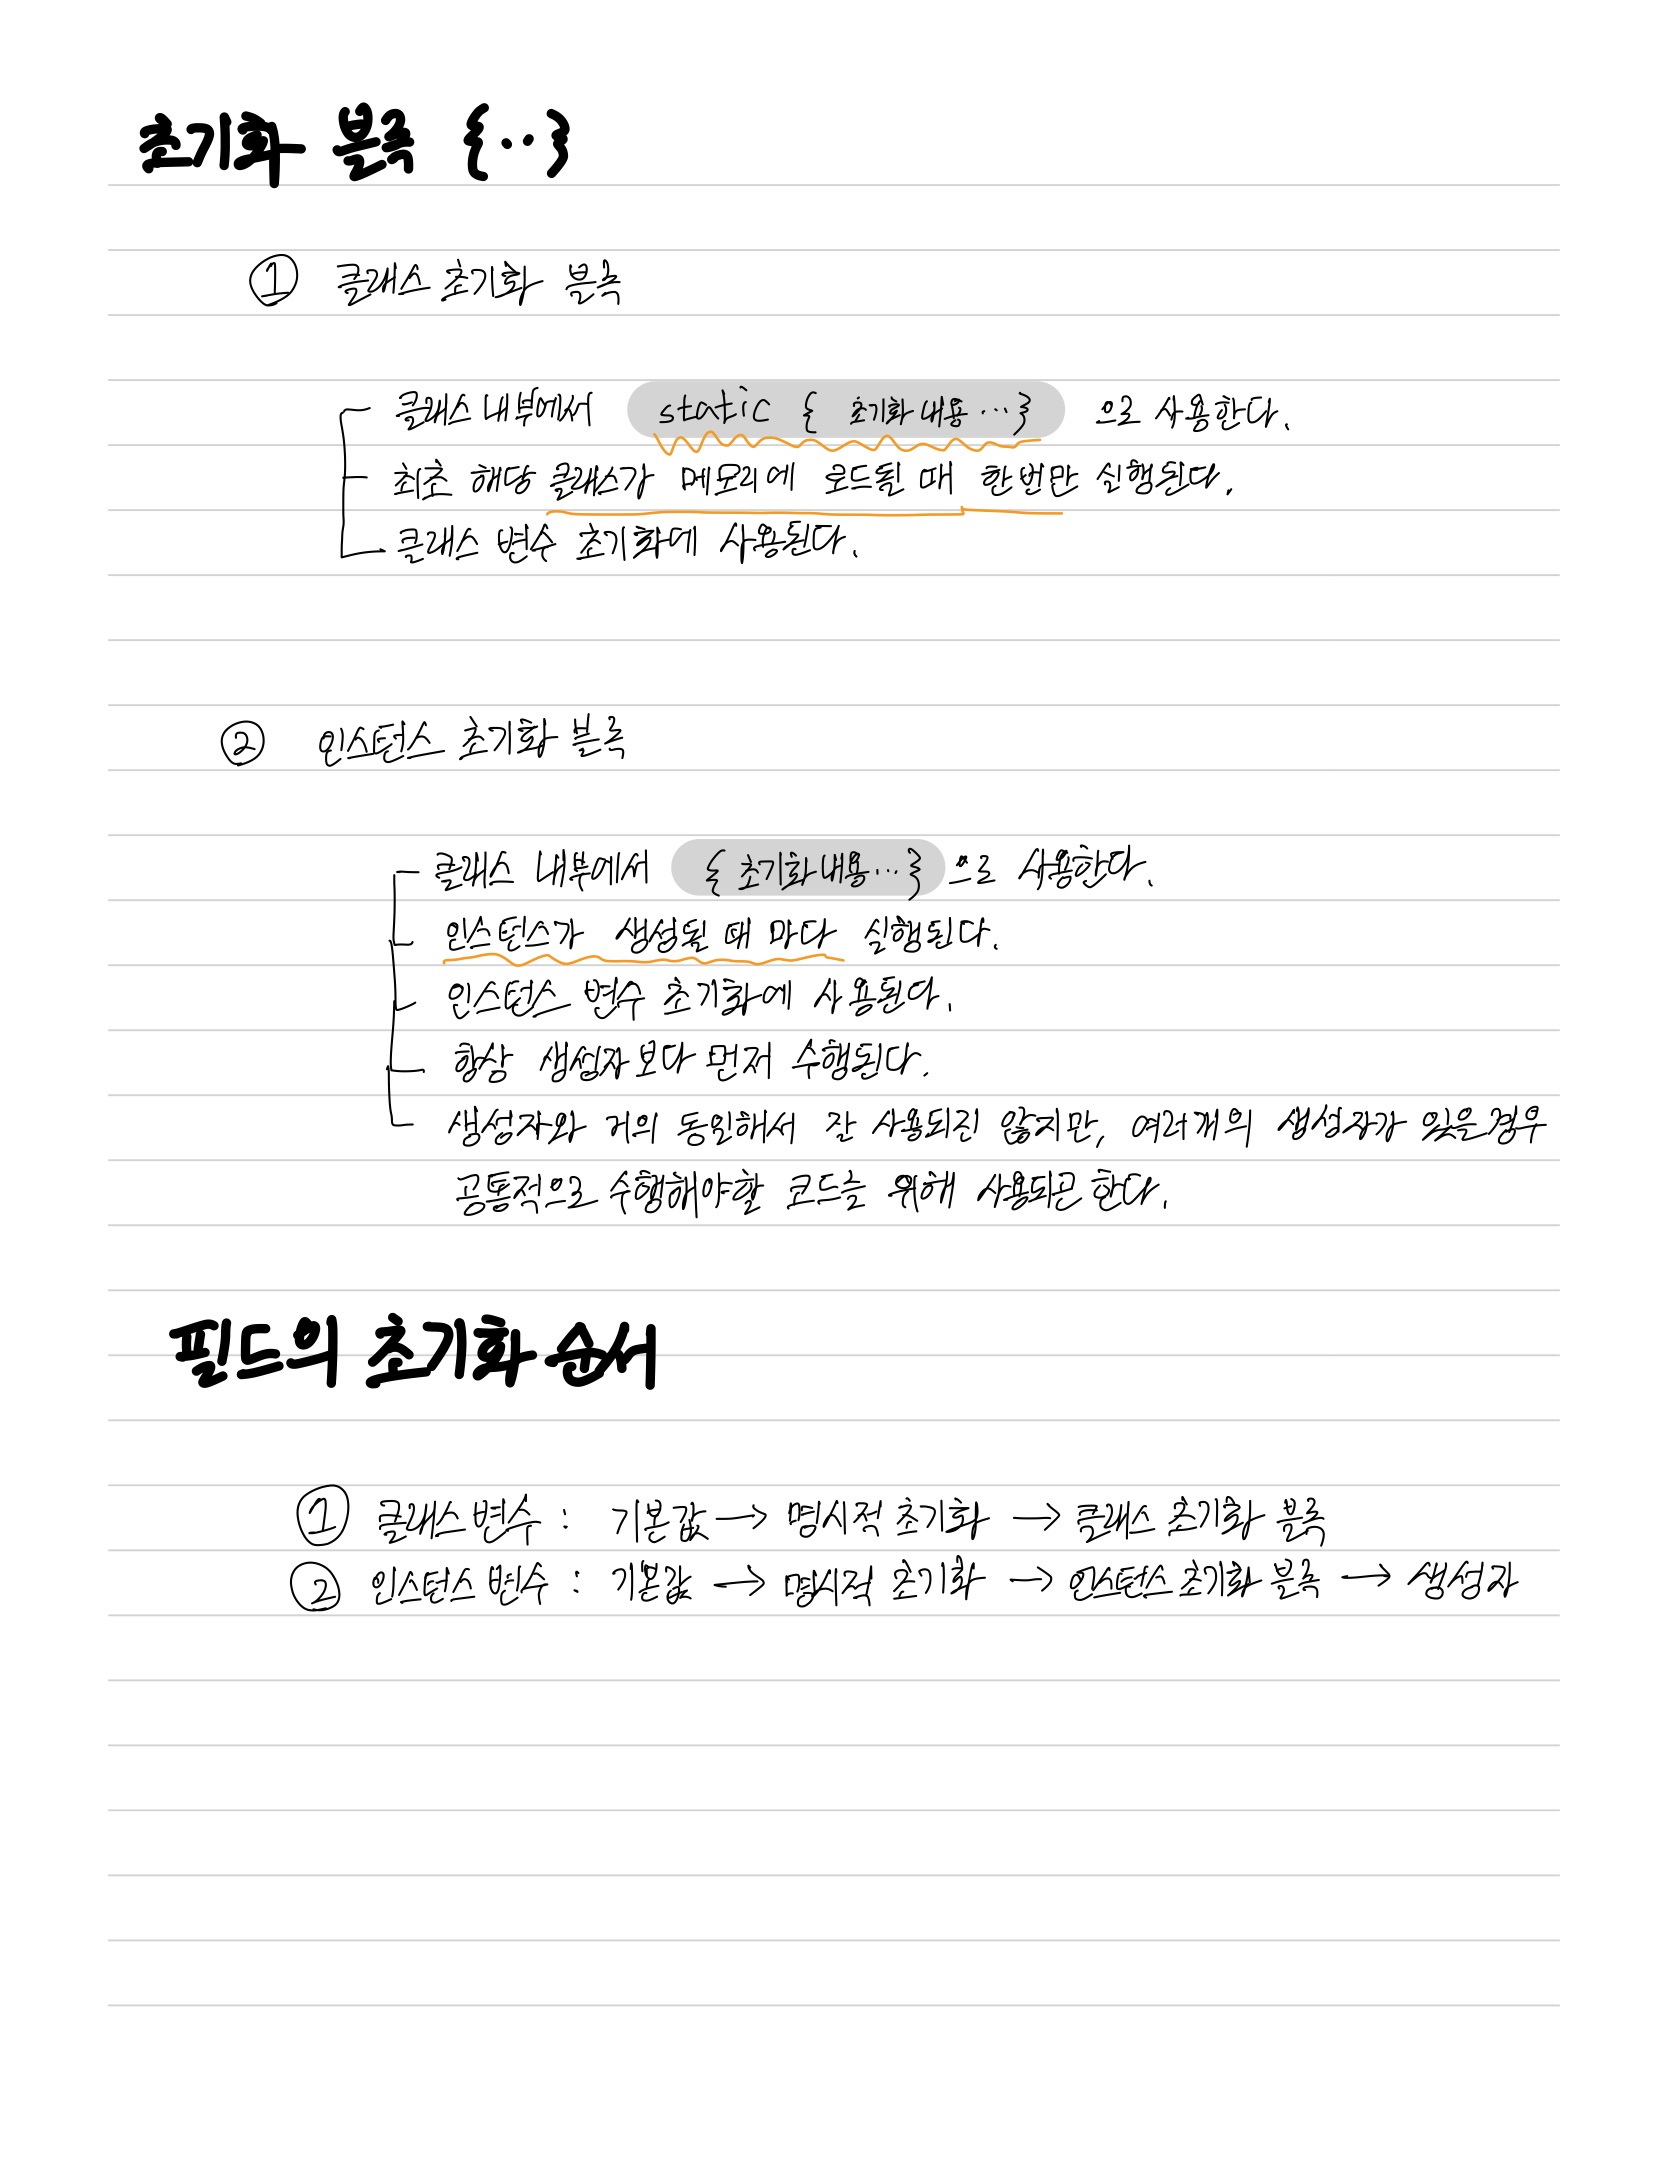 초기화 블록 {··}
① 클래스 초기화 블록
클래스 내부에서 static { 초기화 내용 ···} 으로 사용한다.
최초 해당 클래스가 메모리에 로드될 때 한번만 실행된다.
클래스 변수 초기화에 사용된다.
② 인스턴스 초기화 블록
클래스 내부에서 { 초기화 내용···} 으로 사용한다.
인스턴스가 생성될 때 마다 실행된다.
인스턴스 변수 초기화에 사용된다.
항상 생성자보다 먼저 수행된다.
생성자와 거의 동일해서 잘 사용되진 않지만, 여러개의 생성자가 있을경우
공통적으로 수행해야할 코드를 위해 사용되곤 한다.
필드의 초기화 순서
① 클래스 변수 : 기본값 → 명시적 초기화 → 클래스 초기화 블록
② 인스턴스 변수 : 기본값 → 명시적 초기화 → 인스턴스 초기화 블록 → 생성자